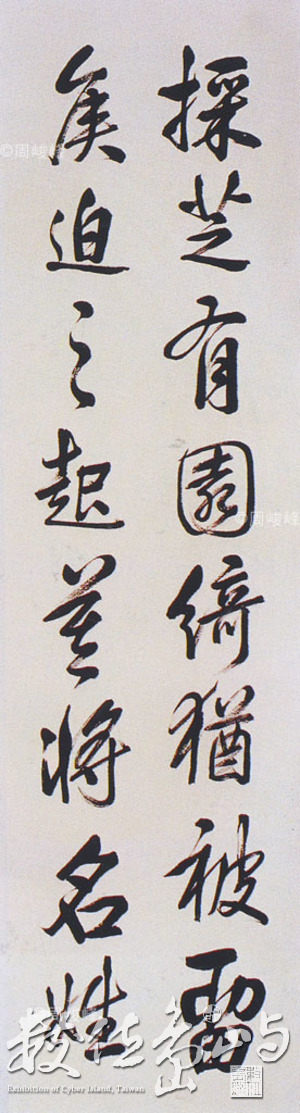 採芝有園綺猶被畱
矦迫之起莫將名姓
©周峻峰
©周峻峰
數位島嶼
Exhibition of Cyber Island, Taiwan